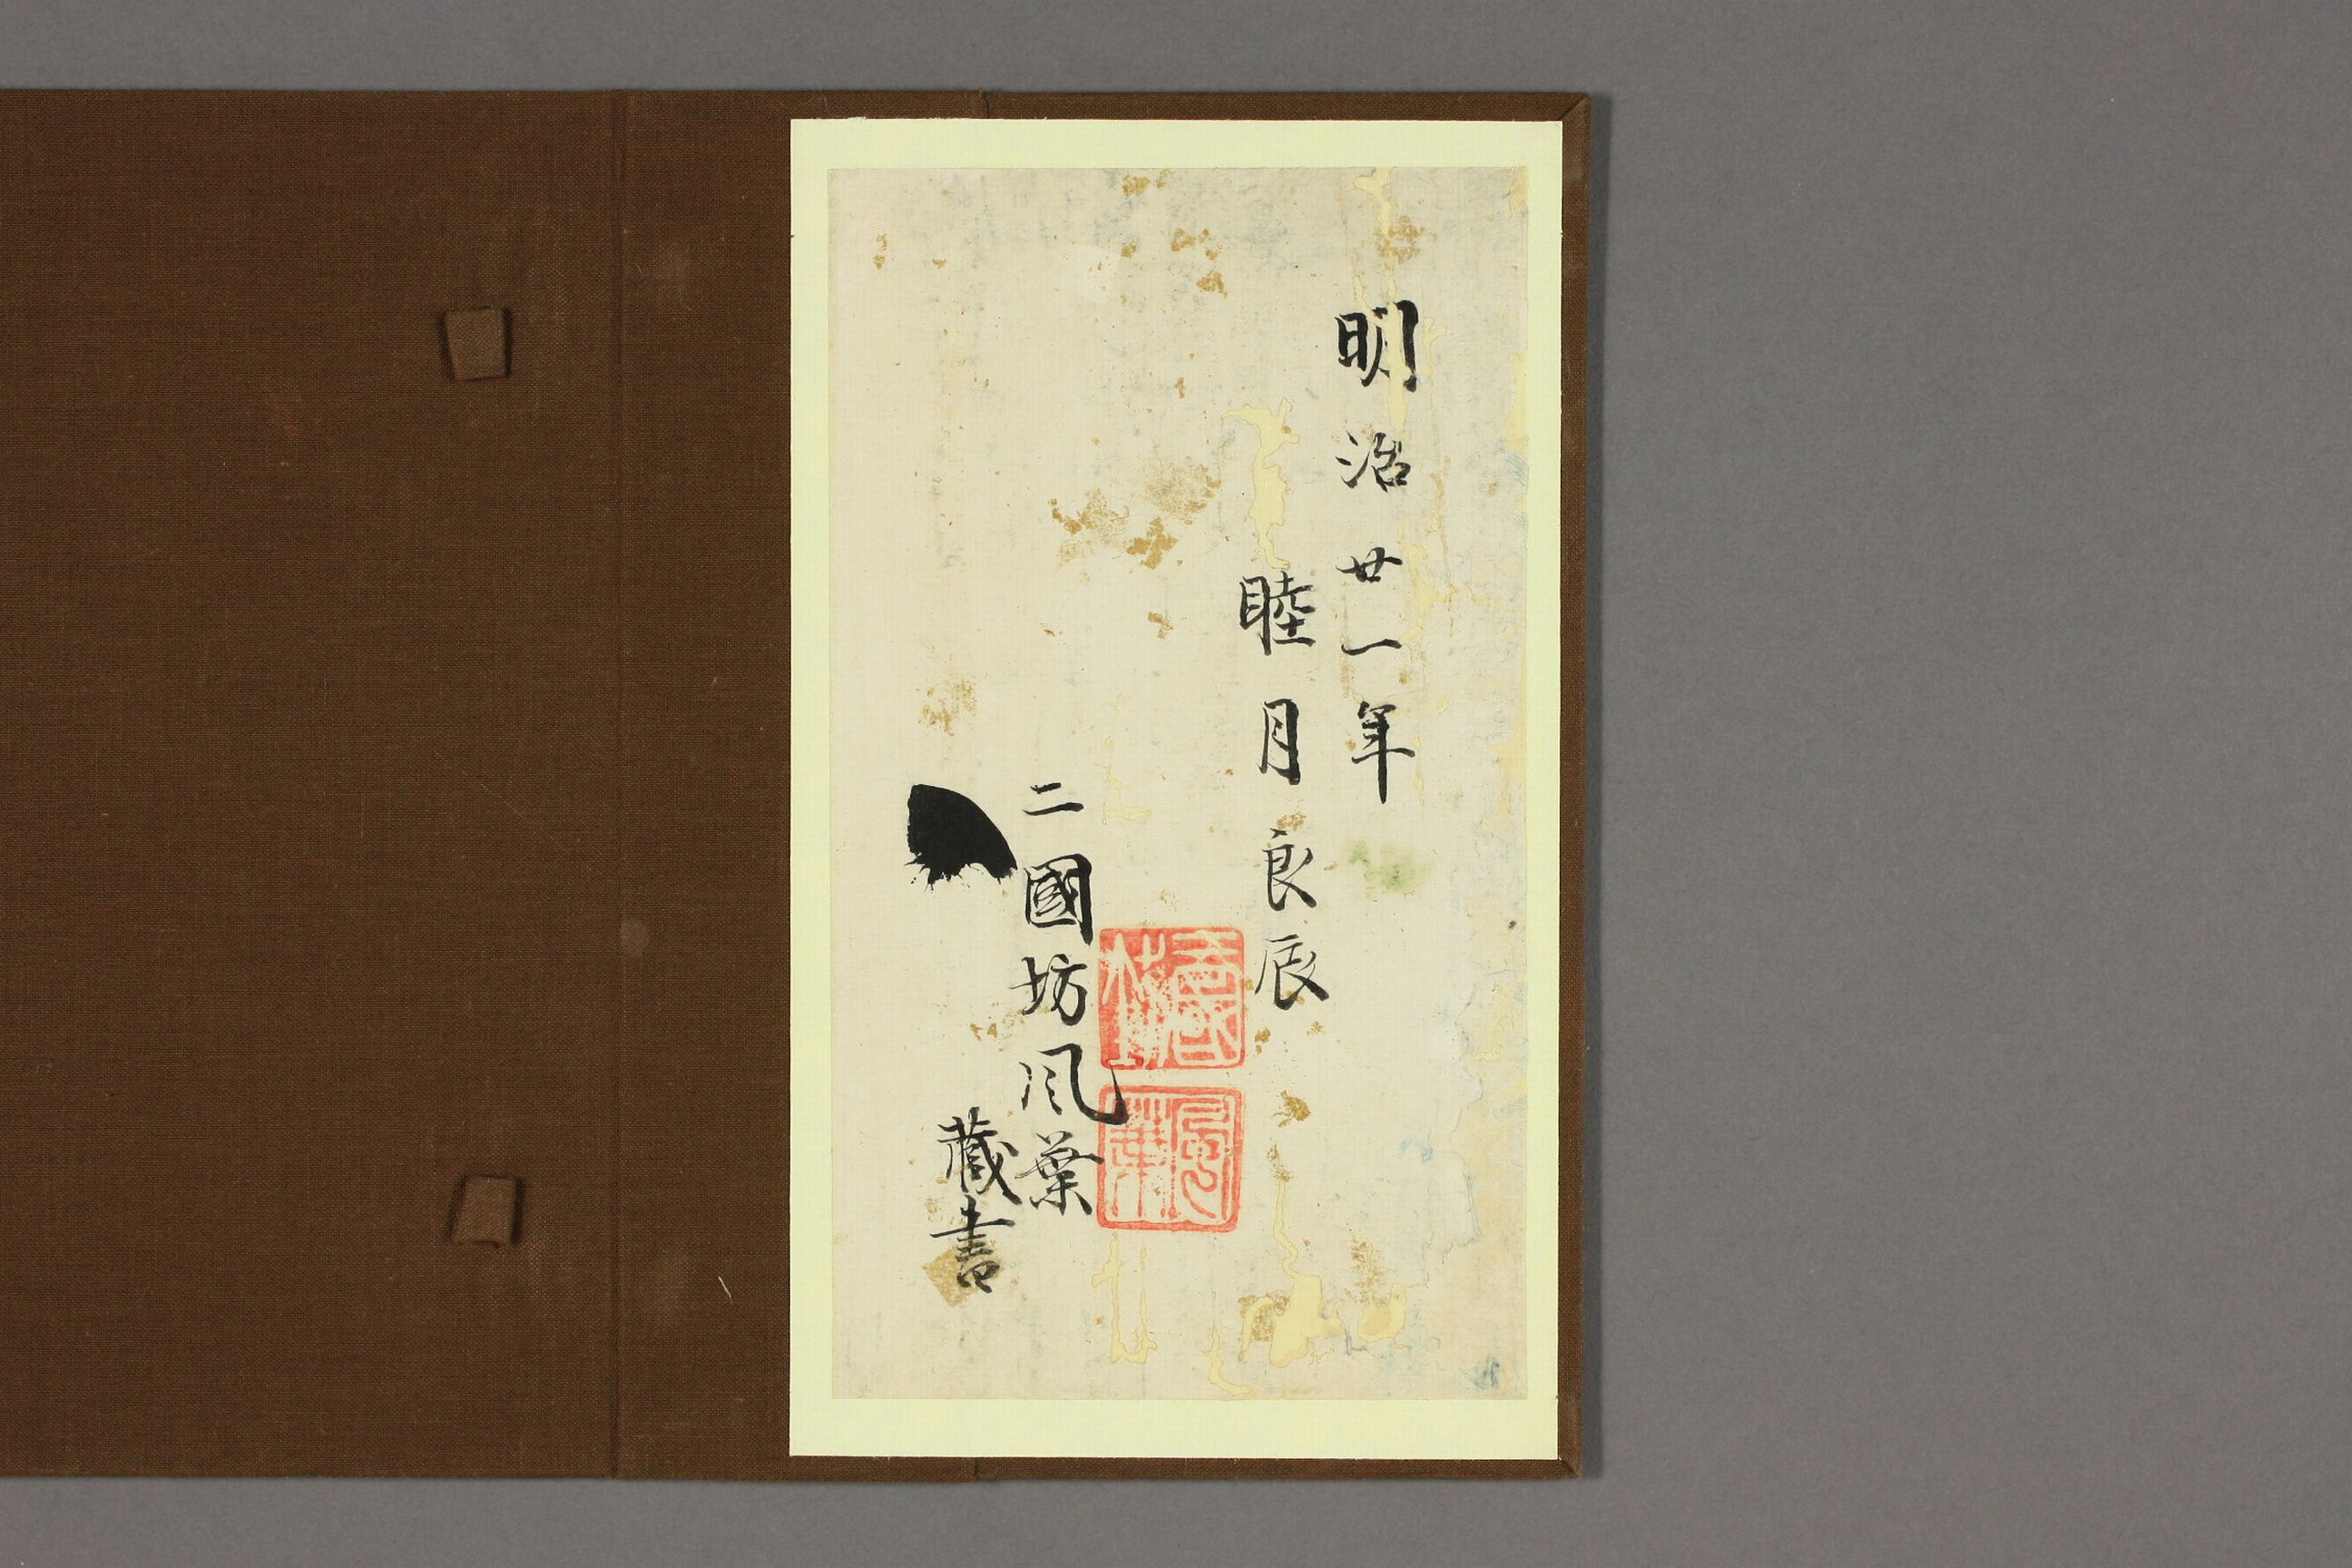 明治廿一年
睦月良辰
二國坊風葉
藏書
風葉